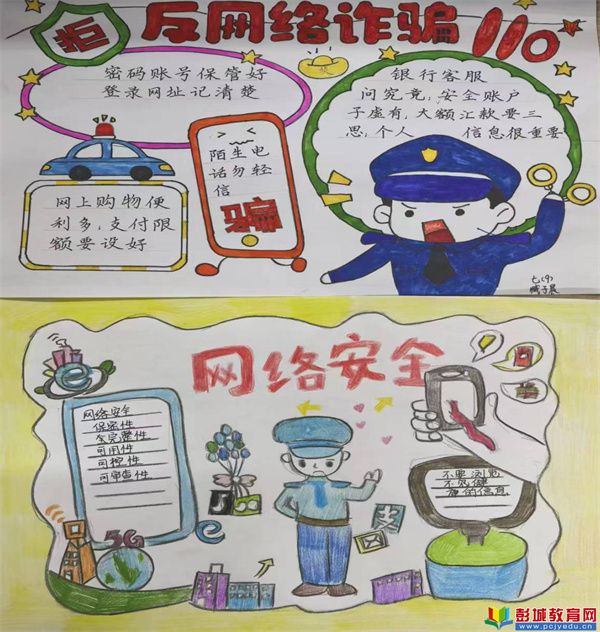 拒
反网络诈骗110
密码账号保管好
登录网址记清楚
银行客服
问究竟,安全账户
子虚有,大额汇款要三
思,个人 信息很重要
陌生电
话勿轻
信
骗
网上购物便
利多,支付限
额要设好
七(9)
网络安全
网络安全
保密性
完整性
可用性
可控性
可审查性
不要浏览
不健康
的信息
5G
支
彭城教育网
www.pcjyedu.cn